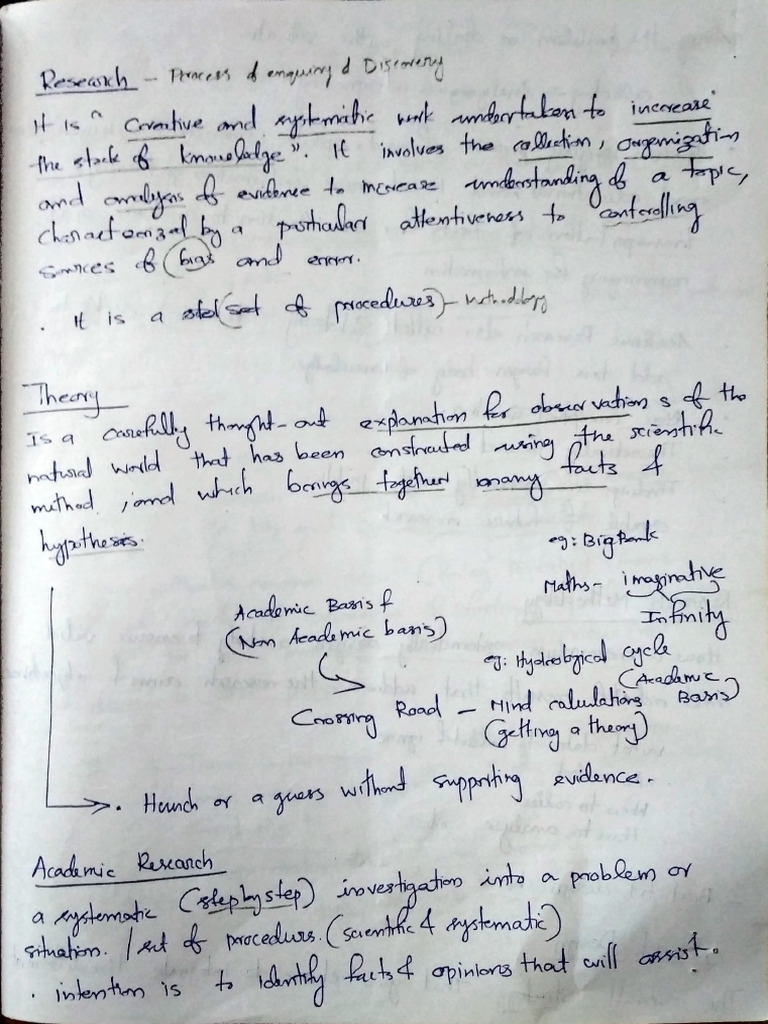 Research - Process of enquiry & Discovery
It is "Creative and systematic work undertaken to increase
the stock of knowledge". It involves the collection, organization
and analysis of evidence to increase understanding of a topic,
characterized by a particular attentiveness to controlling
sources of bias and error.
. It is a (set of procedures) - Methodology
Theory
Is a carefully thought-out explanation for observations of the
natural world that has been constructed using the scientific
method, and which brings together many facts &
hypothesis.
eg: Big Bank
Maths - imaginative
Infinity
Academic Basis &
(Non Academic basis)
eg: Hydrological cycle
(Academic Basis)
Crossing Road - Mind calculations
(getting a theory)
. Hunch or a guess without supporting evidence.
Academic Research
a systematic (step by step) investigation into a problem or
situation. / set of procedures. (scientific & systematic)
. intention is to identify facts & opinions that will assist.